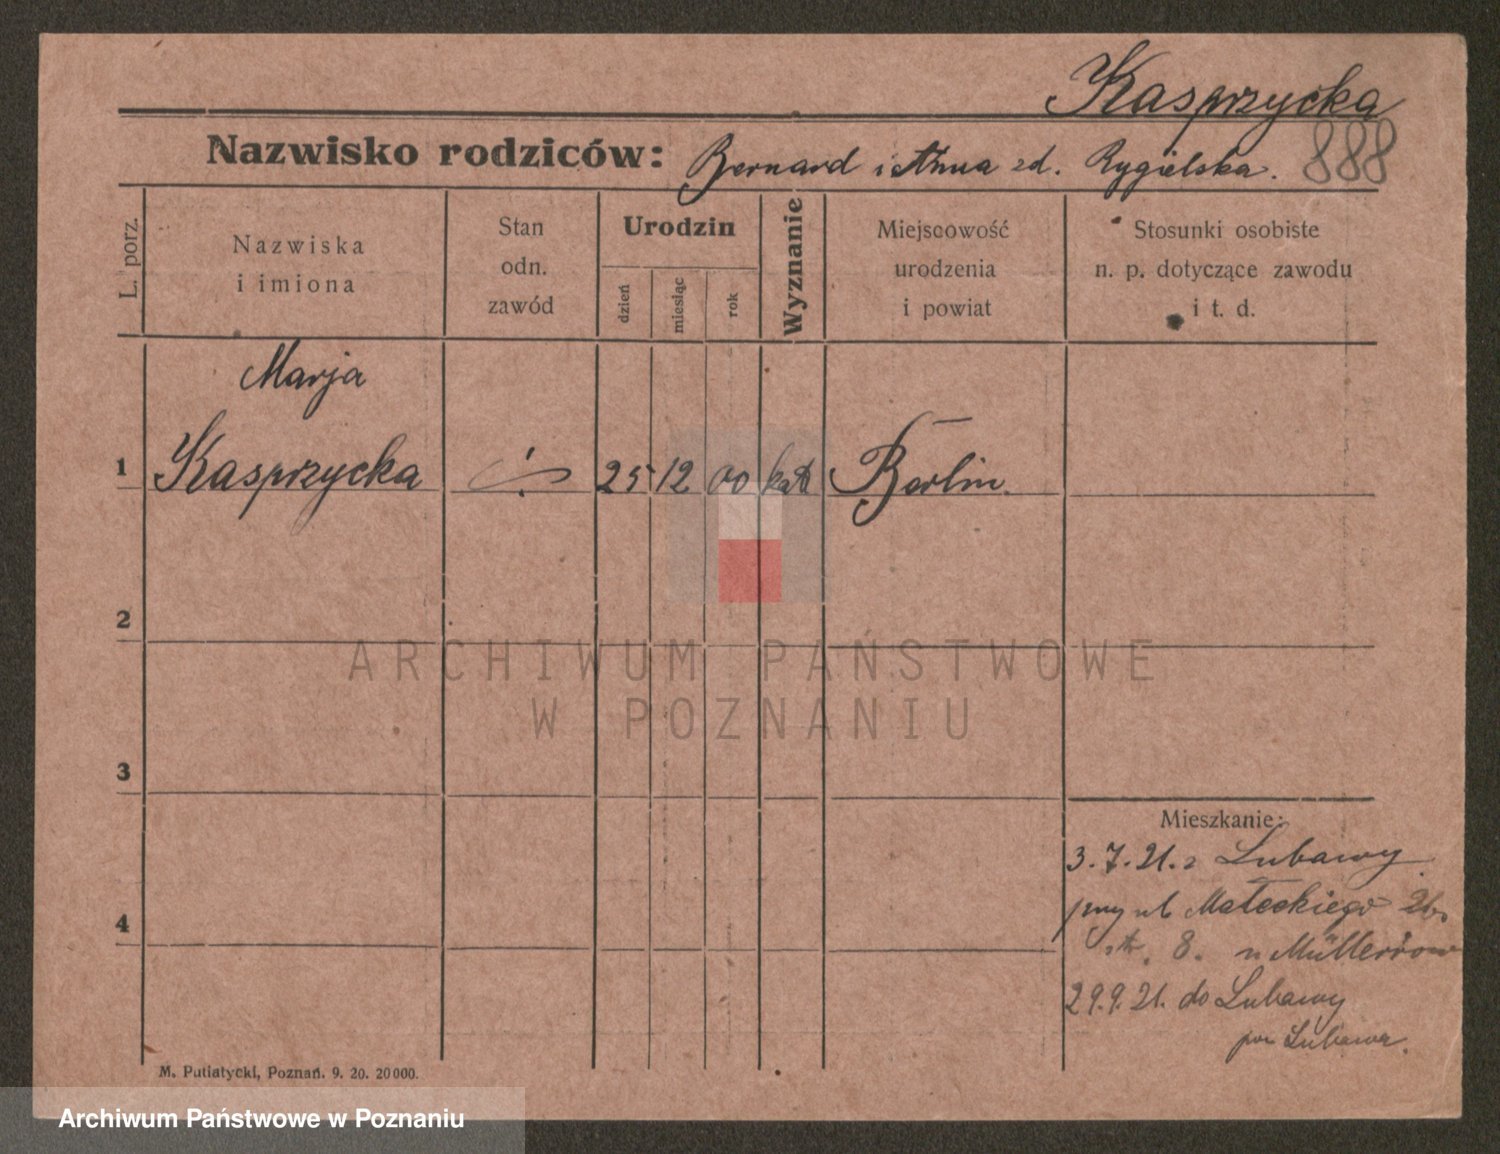 Kasprzycka
Nazwisko rodziców: Bernard i Anna zd. Rygielska.
888
L. porz.
Nazwiska
i imiona
Stan
odn.
zawód
Urodzin
dzień
miesiąc
rok
Wyznanie
Miejscowość
urodzenia
i powiat
Stosunki osobiste
n. p. dotyczące zawodu
i t. d.
Marja
1 Kasprzycka 25 12 00 kat Berlin.
2
3
4
Mieszkanie:
3.7.21. z Lubawy
przy ul Małeckiego 26
8. u
29.9.21. do Lubawy
pow Lubawa.
M. Putiatycki, Poznań. 9. 20. 20000.
ARCHIWUM PAŃSTWOWE
W POZNANIU
Archiwum Państwowe w Poznaniu